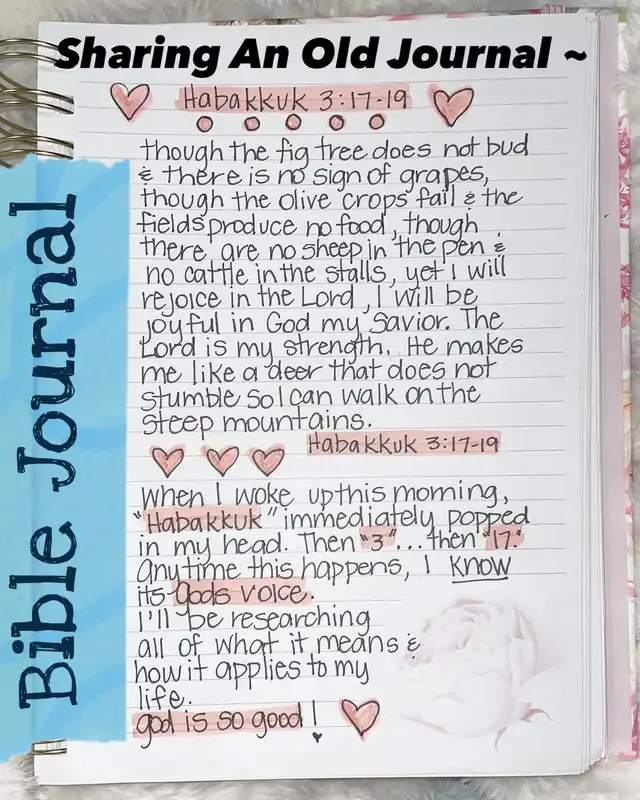 Sharing An Old Journal ~
Bible Journal
Habakkuk 3:17-19
though the fig tree does not bud
& there is no sign of grapes,
though the olive crops fail & the
fields produce no food, though
there are no sheep in the pen &
no cattle in the stalls, yet I will
rejoice in the Lord, I will be
joyful in God my Savior. The
Lord is my strength. He makes
me like a deer that does not
stumble so I can walk on the
steep mountains.
Habakkuk 3:17-19
When I woke up this morning,
"Habakkuk" immediately popped
in my head. Then "3"... then "17."
Anytime this happens, I know
its Gods voice.
I'll be researching
all of what it means &
how it applies to my
life.
god is so good!